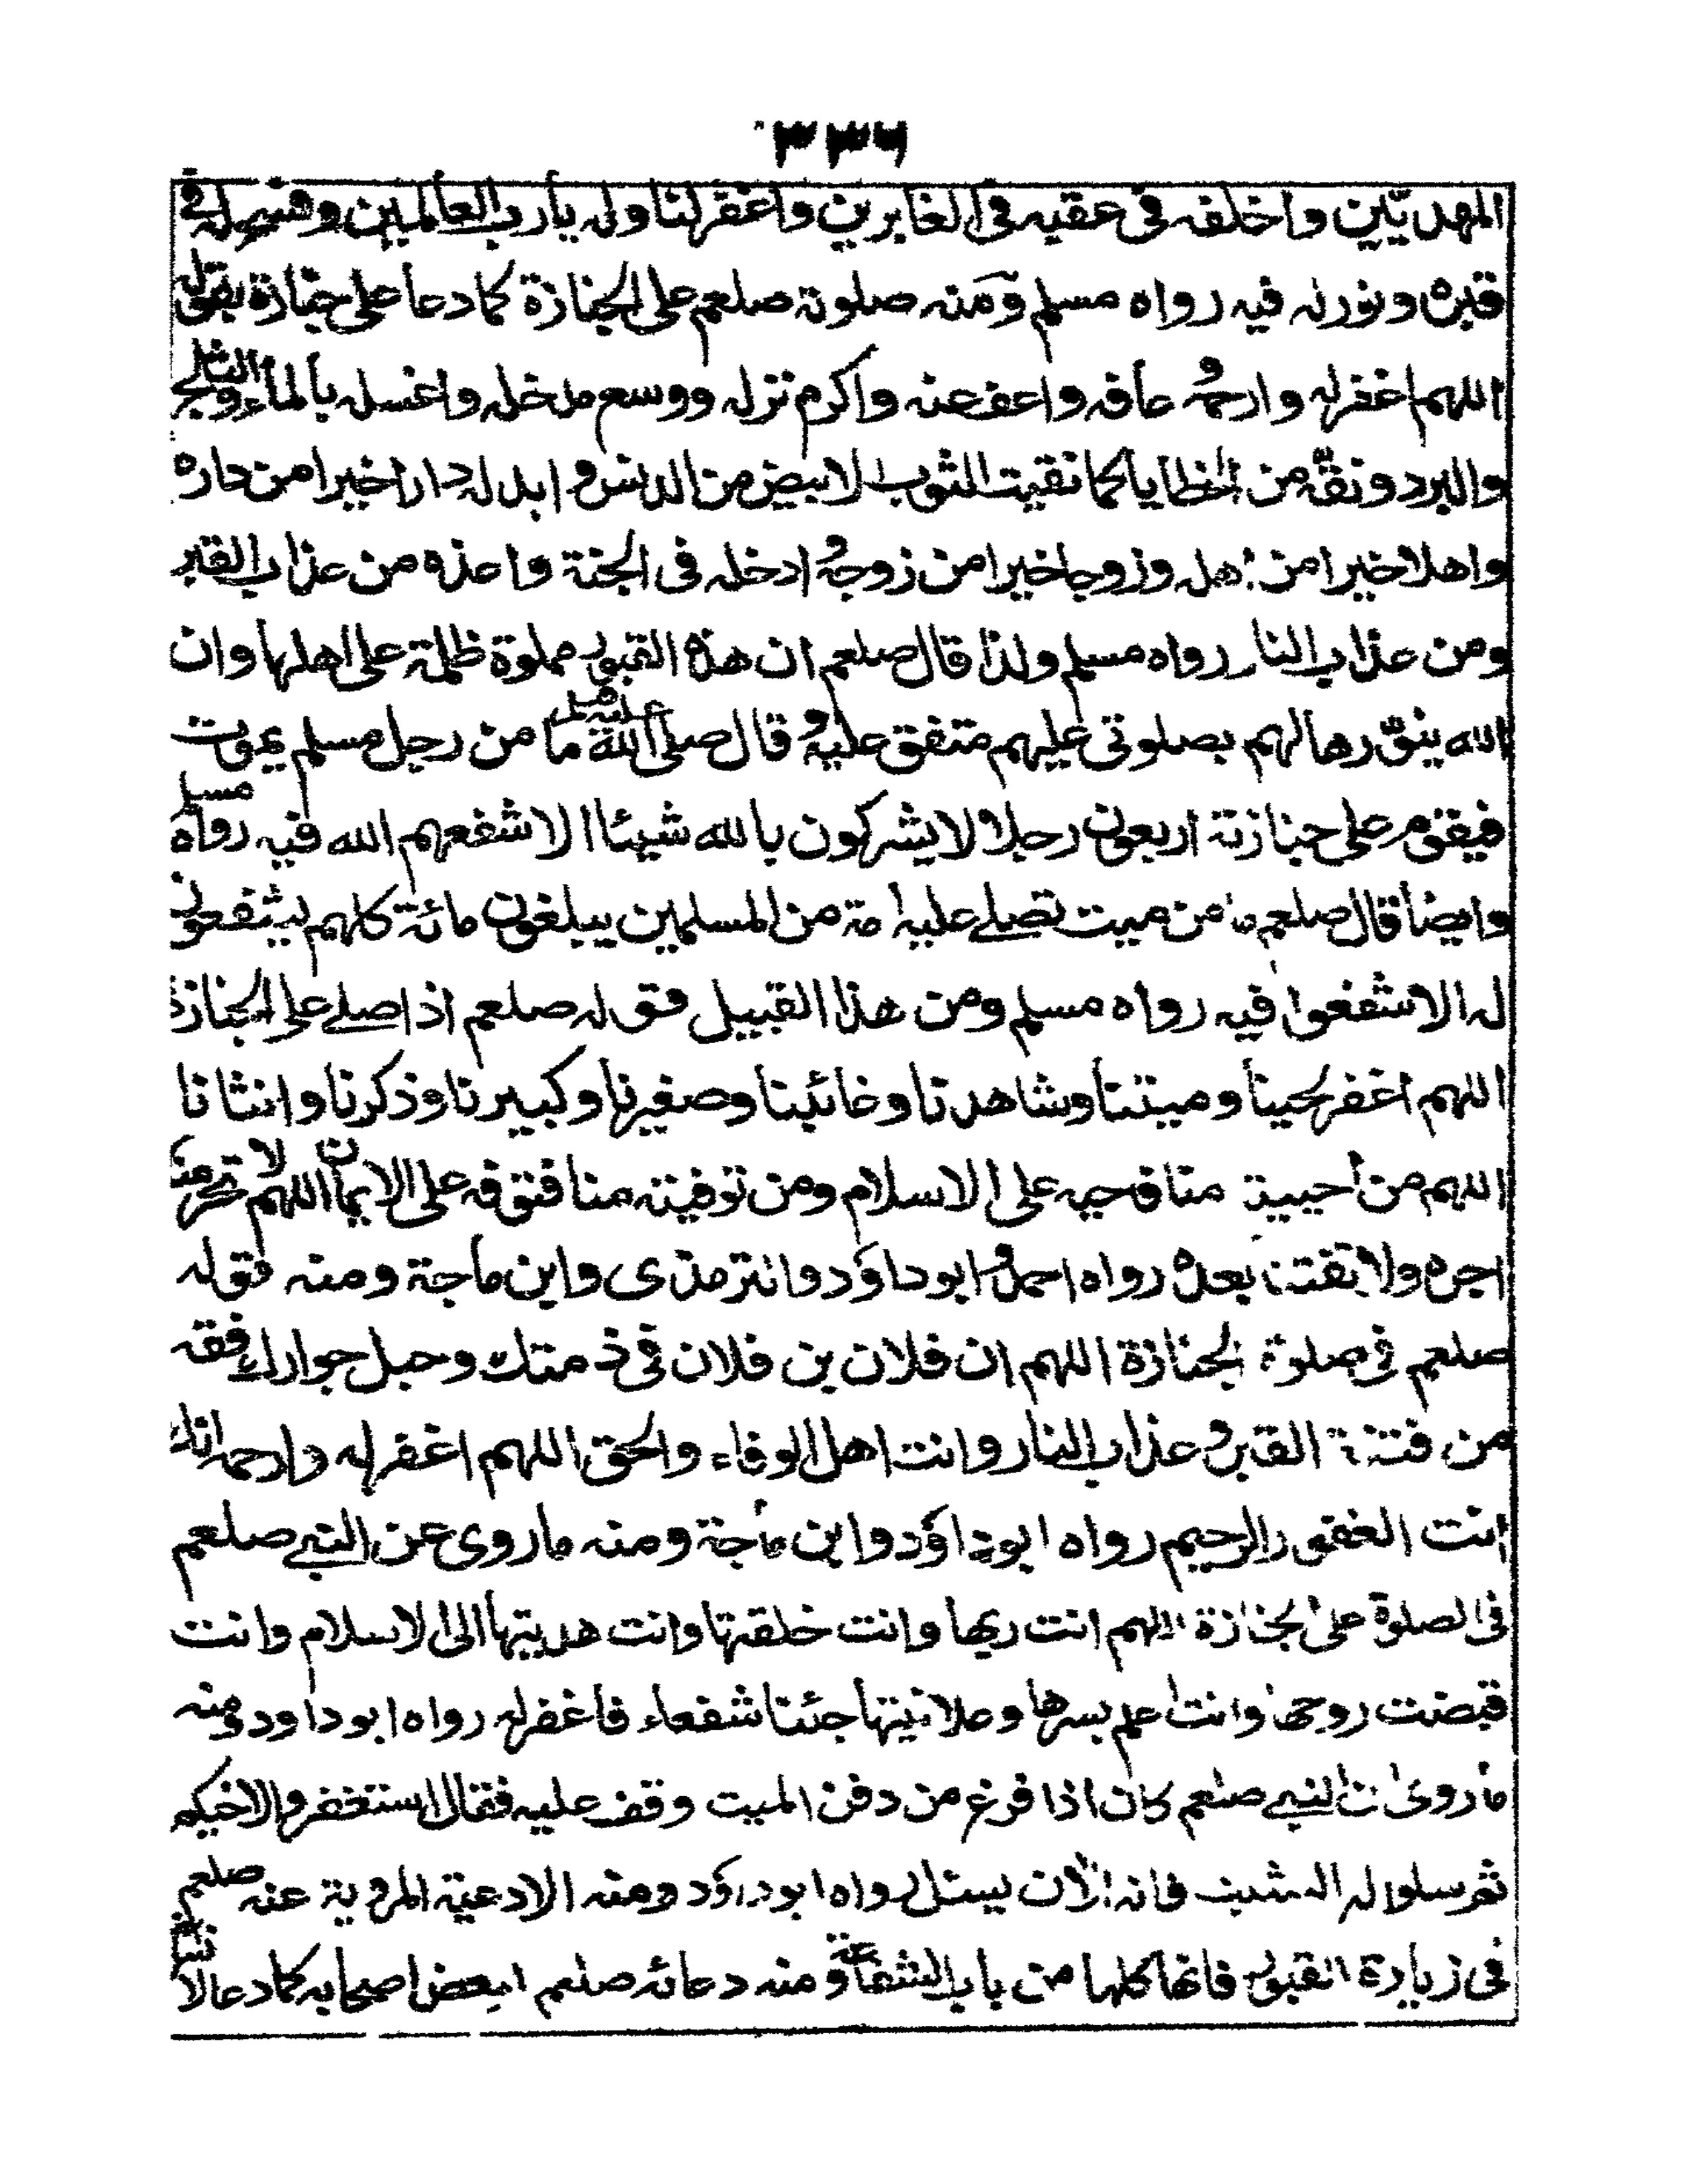 ٣٣٦
المهديّين واخلفه فى عقبه فى الغابرين واغفر لنا وله يا رب العالمين وفسح له فى
قبره ونور له فيه رواه مسلم ومنه صلوة صلعم على الجنازة كما دعا على جنازة بقوله
اللهم اغفر له وارحمه و عافه واعف عنه واكرم نزله ووسع مدخله واغسله بالماء والثلج
والبرد ونقّه من الخطايا كما نقيت الثوب الابيض من الدنس و ابدله دارا خيرا من داره
واهلا خيرا من اهله وزوجا خيرا من زوجه و ادخله فى الجنة واعذه من عذاب القبر
ومن عذاب النار رواه مسلم ولذا قال صلعم ان هذه القبور مملوة ظلمة على اهلها وان
الله ينوّرها لهم بصلوتى عليهم متفق عليه و قال صلى الله عليه وسلم ما من رجل مسلم يموت
فيقوم على جنازته اربعون رجلا لا يشركون بالله شيئا الا شفعهم الله فيه رواه مسلم
وايضا قال صلعم ما من ميت تصلے عليه امة من المسلمين يبلغون مائة كلهم يشفعون
له الا شفعوا فيه رواه مسلم ومن هذا القبيل قوله صلعم اذا صلے على الجنازة
اللهم اغفر لحينا وميتنا وشاهدنا وغائبنا وصغيرنا وكبيرنا وذكرنا وانثانا
اللهم من احييته منا فاحيه على الاسلام ومن توفيته منا فتوفه على الايمان اللهم لا تحرمنا
اجره ولا تفتنا بعده رواه احمد و ابو داؤد والترمذى وابن ماجة ومنه قوله
صلعم فى صلوة الجنازة اللهم ان فلان بن فلان فى ذمتك وحبل جوارك فقه
من فتنة القبر و عذاب النار وانت اهل الوفاء والحق اللهم اغفر له وارحمه انك
انت الغفور الرحيم رواه ابو داؤد وابن ماجة ومنه ما روى عن النبے صلعم
فى الصلوة على الجنازة اللهم انت ربها وانت خلقتها وانت هديتها الى الاسلام وانت
قبضت روحها وانت اعلم بسرها وعلانيتها جئنا شفعاء فاغفر له رواه ابو داود ومنه
ما روى ان النبے صلعم كان اذا فرغ من دفن الميت وقف عليه فقال استغفروا لاخيكم
ثم سلوا له التثبيت فانه الآن يسئل رواه ابو داؤد ومنه الادعية المروية عنه صلعم
فى زيارة القبور فانها كلها من باب الشفاعة و منه دعائه صلعم لبعض اصحابه كما دعا